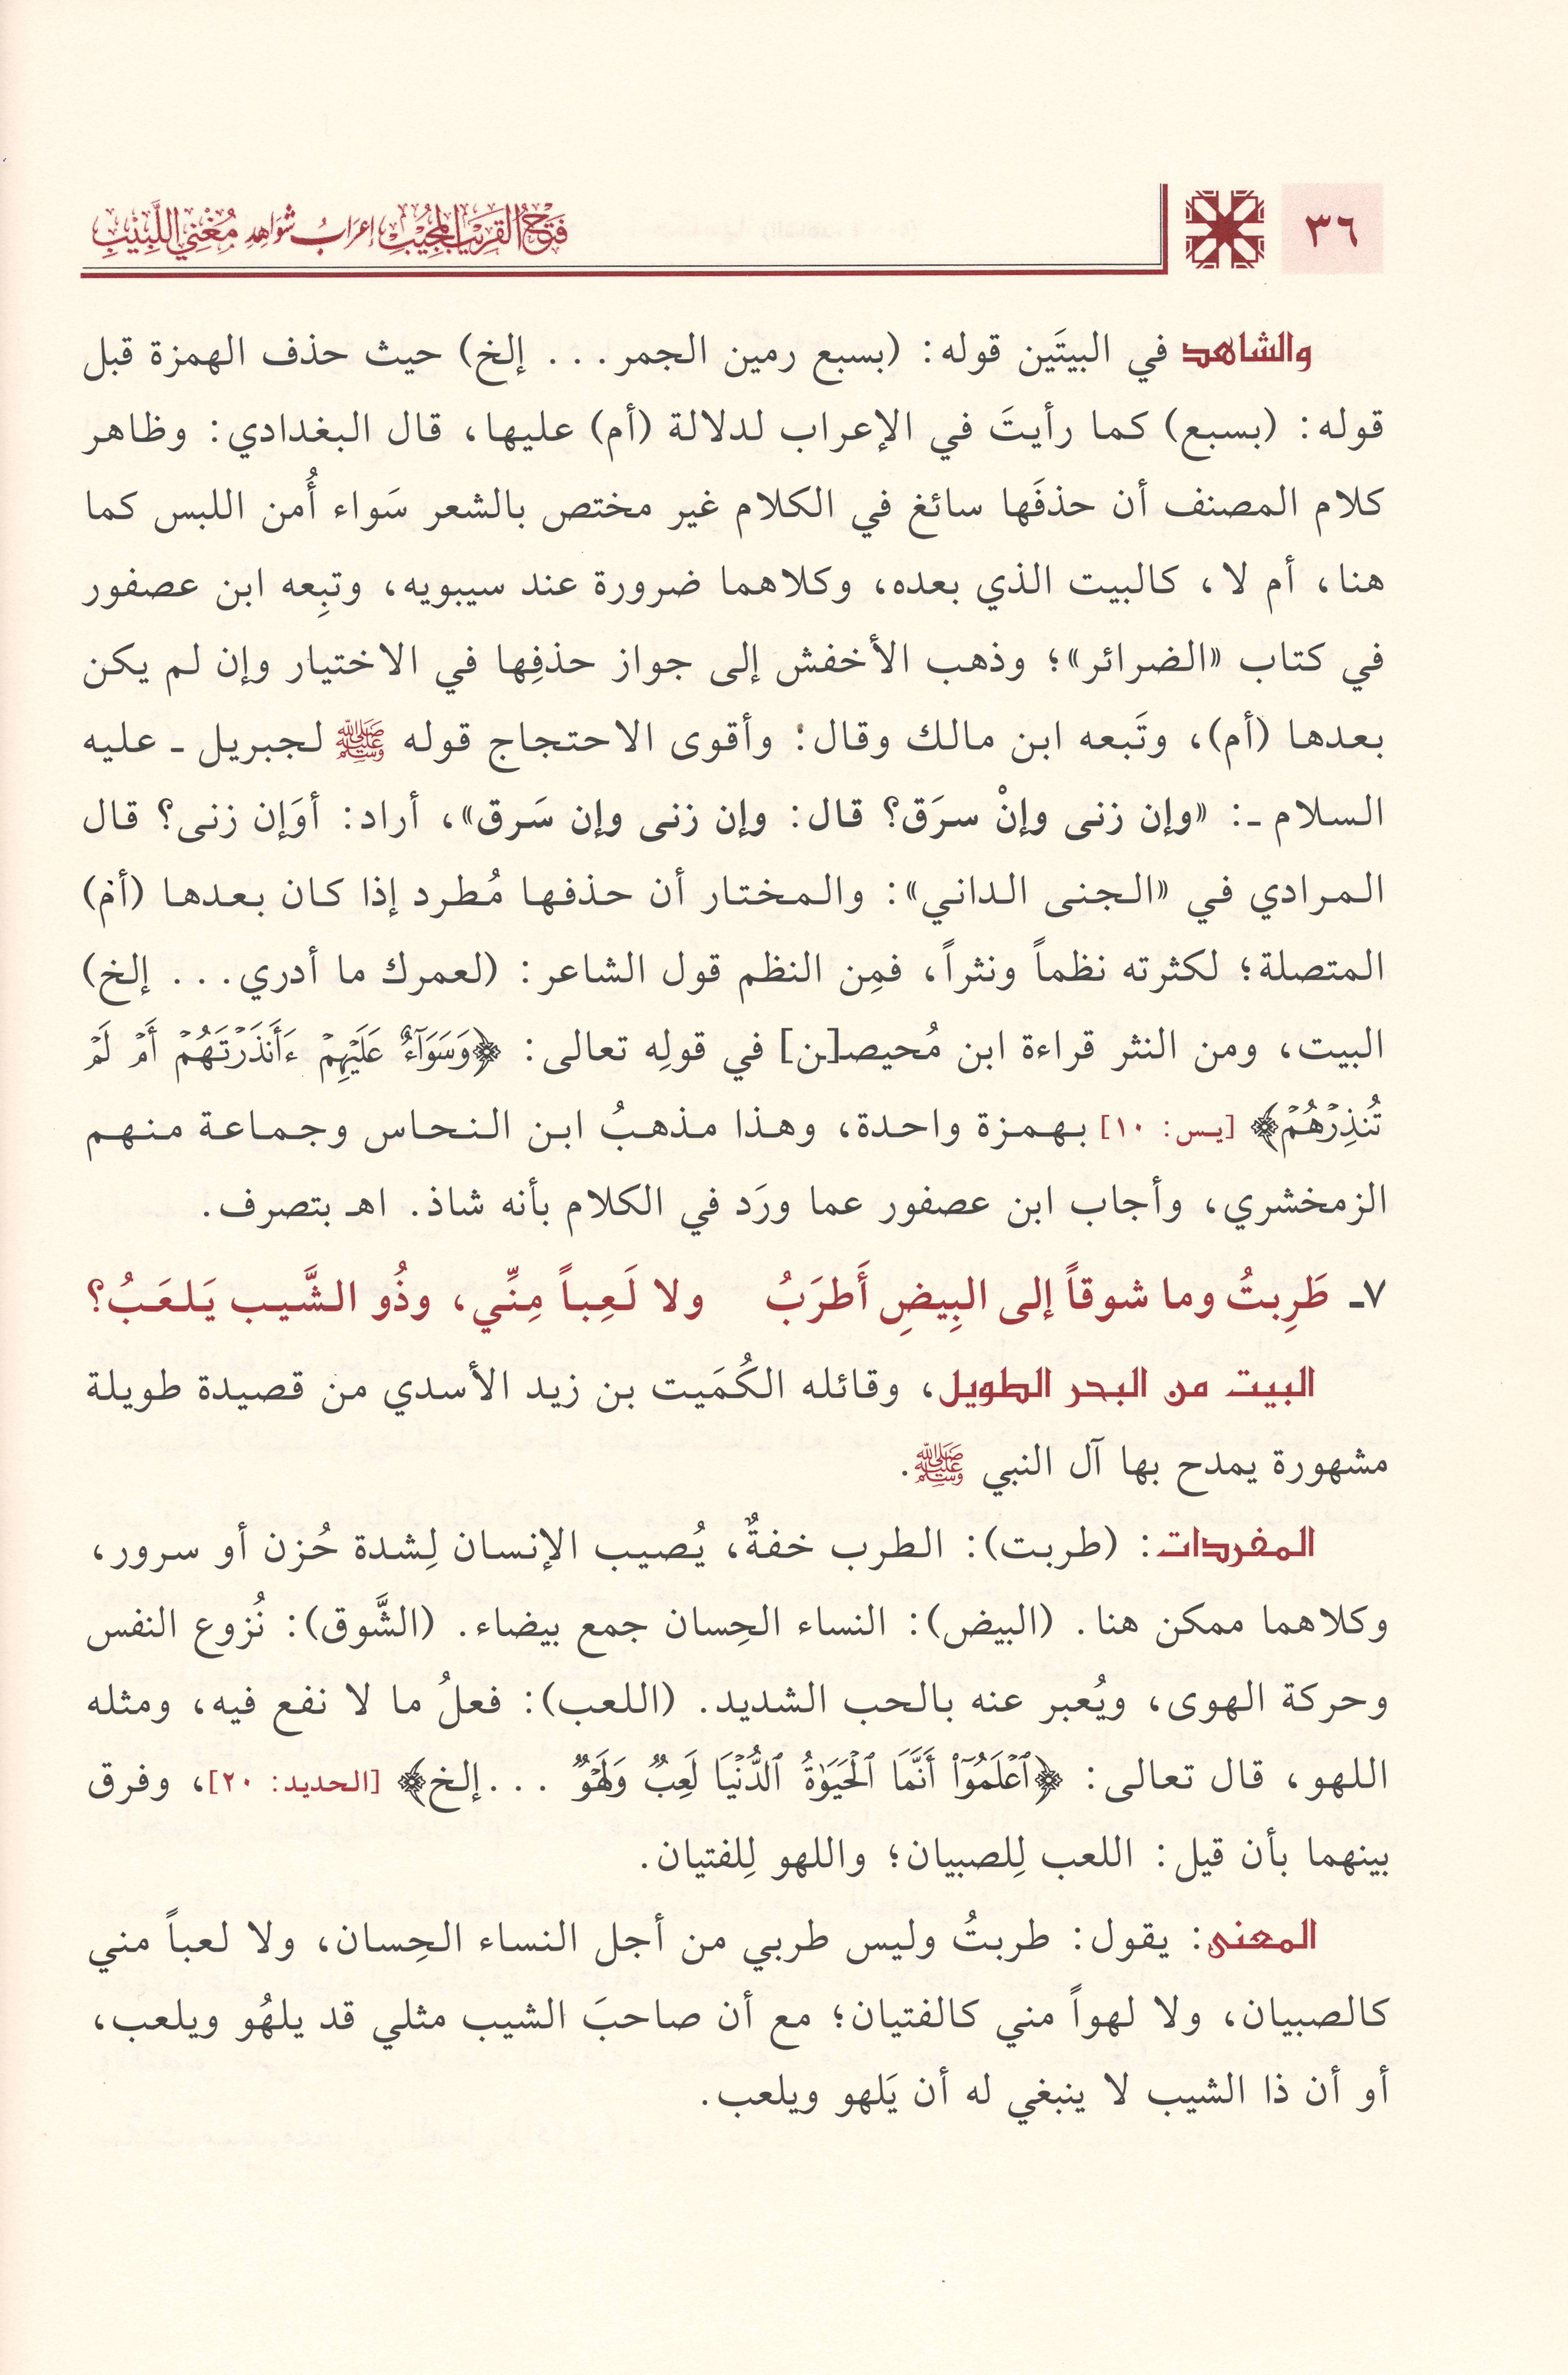 ٣٦
فتح القريب المجيب إعراب شواهد مغني اللبيب
والشاهد في البيتَين قوله: (بسبع رمين الجمر... إلخ) حيث حذف الهمزة قبل
قوله: (بسبع) كما رأيتَ في الإعراب لدلالة (أم) عليها، قال البغدادي: وظاهر
كلام المصنف أن حذفَها سائغ في الكلام غير مختص بالشعر سَواء أُمن اللبس كما
هنا، أم لا، كالبيت الذي بعده، وكلاهما ضرورة عند سيبويه، وتبِعه ابن عصفور
في كتاب «الضرائر»؛ وذهب الأخفش إلى جواز حذفِها في الاختيار وإن لم يكن
بعدها (أم)، وتَبعه ابن مالك وقال: وأقوى الاحتجاج قوله ﷺ لجبريل ـ عليه
السلام ـ: «وإن زنى وإنْ سرَق؟ قال: وإن زنى وإن سَرق»، أراد: أوَإن زنى؟ قال
المرادي في «الجنى الداني»: والمختار أن حذفها مُطرد إذا كان بعدها (أم)
المتصلة؛ لكثرته نظماً ونثراً، فمِن النظم قول الشاعر: (لعمرك ما أدري... إلخ)
البيت، ومن النثر قراءة ابن مُحيصـ[ن] في قولِه تعالى: ﴿وَسَوَآءٌ عَلَيْهِمْ ءَأَنذَرْتَهُمْ أَمْ لَمْ
تُنذِرْهُمْ﴾ [يس: ١٠] بهمزة واحدة، وهذا مذهبُ ابن النحاس وجماعة منهم
الزمخشري، وأجاب ابن عصفور عما ورَد في الكلام بأنه شاذ. اهـ بتصرف.
٧ـ طَرِبتُ وما شوقاً إلى البِيضِ أَطرَبُ ولا لَعِباً مِنِّي، وذُو الشَّيب يَلعَبُ؟
البيت من البحر الطويل، وقائله الكُمَيت بن زيد الأسدي من قصيدة طويلة
مشهورة يمدح بها آل النبي ﷺ.
المفردات: (طربت): الطرب خفةٌ، يُصيب الإنسان لِشدة حُزن أو سرور،
وكلاهما ممكن هنا. (البيض): النساء الحِسان جمع بيضاء. (الشَّوق): نُزوع النفس
وحركة الهوى، ويُعبر عنه بالحب الشديد. (اللعب): فعلُ ما لا نفع فيه، ومثله
اللهو، قال تعالى: ﴿ٱعْلَمُوٓا۟ أَنَّمَا ٱلْحَيَوٰةُ ٱلدُّنْيَا لَعِبٌ وَلَهْوٌ ...إلخ﴾ [الحديد: ٢٠]، وفرق
بينهما بأن قيل: اللعب لِلصبيان؛ واللهو لِلفتيان.
المعنى: يقول: طربتُ وليس طربي من أجل النساء الحِسان، ولا لعباً مني
كالصبيان، ولا لهواً مني كالفتيان؛ مع أن صاحبَ الشيب مثلي قد يلهُو ويلعب،
أو أن ذا الشيب لا ينبغي له أن يَلهو ويلعب.